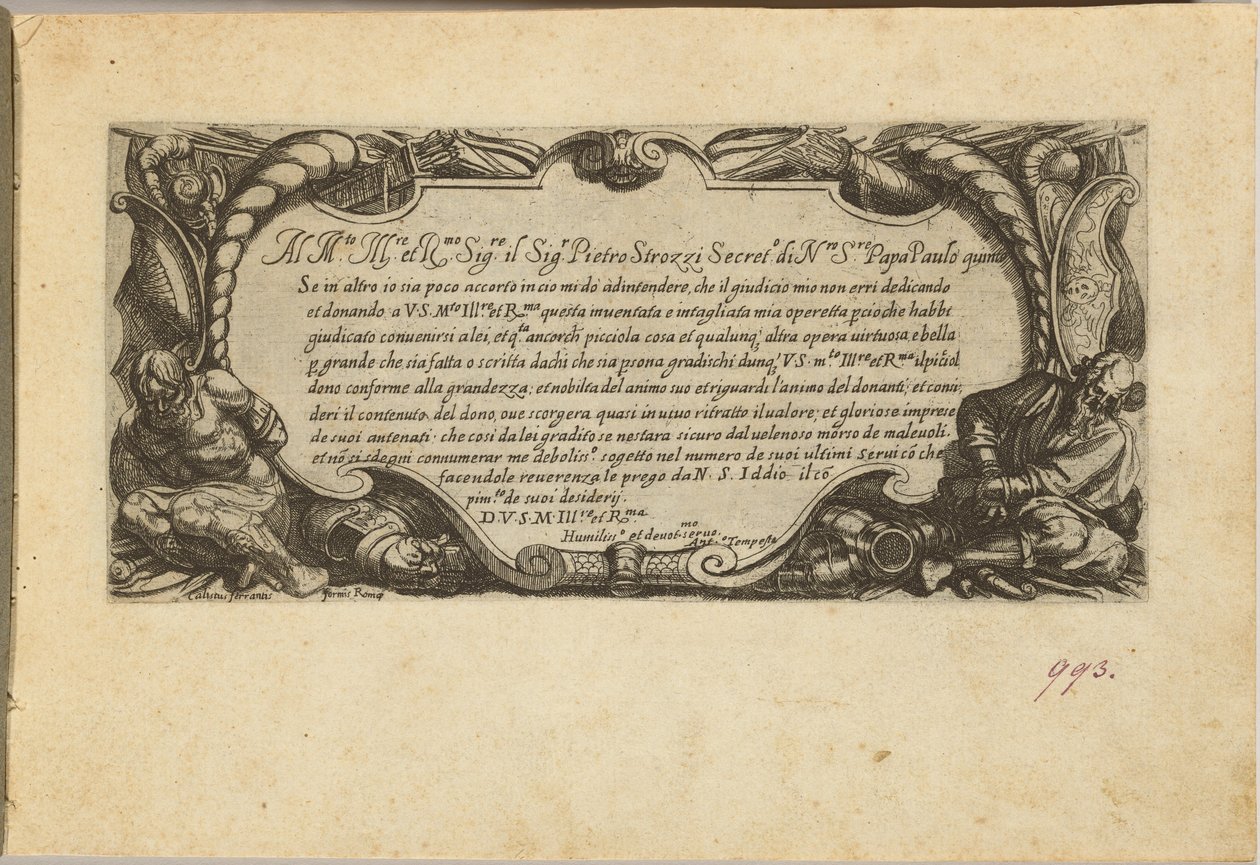 Al M.to Ill.re et R.mo Sig.re il Sig.r Pietro Strozzi Secret.o di N.ro S.re Papa Paulo quinto
Se in altro io sia poco accorto in cio mi dò adintendere, che il giudicio mio non erri dedicando
et donando a V.S. M.to Ill.re et R.ma questa inuentata e intagliata mia operetta p̱cioche habbi
giudicato conuenirsi a lei, et q.ta ancorch' picciola cosa et qualunq; altra opera uirtuosa, e bella
p̱ grande che sia fatta o scritta da chi che sia p̱sona gradischi dunq; V.S. m.to Ill.re et R.ma il picciol
dono conforme alla grandezza, et nobilta del animo suo et riguardi l'animo del donanti, et consi
deri il contenuto del dono, oue scorgera quasi in uiuo ritratto il ualore, et gloriose imprese
de suoi antenati. che così da lei gradito se nestara sicuro dal uelenoso morso de maleuoli.
et nō si sdegni connumerar me deboliss.o sogetto nel numero de suoi ultimi serui cō che
facendole reuerenza le prego da N. S. Iddio il cō
pim.to de suoi desiderij.
D. V. S. M. Ill.re et R.ma
Humiliss.o et deuot.mo seruo
Ant.o Tempesta
Calistus ferrantis formis Romę
993.